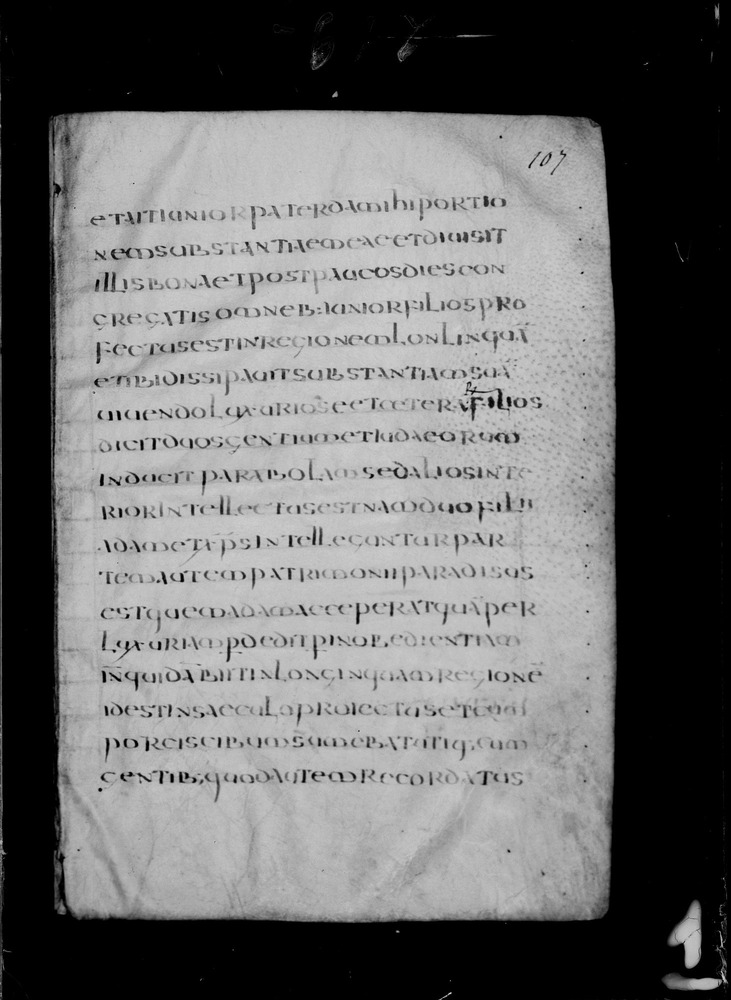 107
etaitiuniorpaterdamihiportio
nemsubstantiaemeaeetdiuisit
illisbonaetpostpaucosdiescon
gregatisomneb:iuniorfiliospro
fectusestinregionemlonlinquā
etibidissipauitsubstantiamsuā
uiuendoluxurioseetceterafilios
dicitduosgentiumetiudaeorum
inducitparabolamsedaliosinte
riorintellectusestnamduofilii
adametx̄p̄sintelleguntur par
temautempatrimoniiparadisus
estquemadamacceperatquāper
luxuriam pdedit pinobedientiam
inquidābiitinlonginquamregionē
idestinsaeculoproiectusetcum
porciscibumsumebatutiq;cum
gentib;quodautemrecordatus